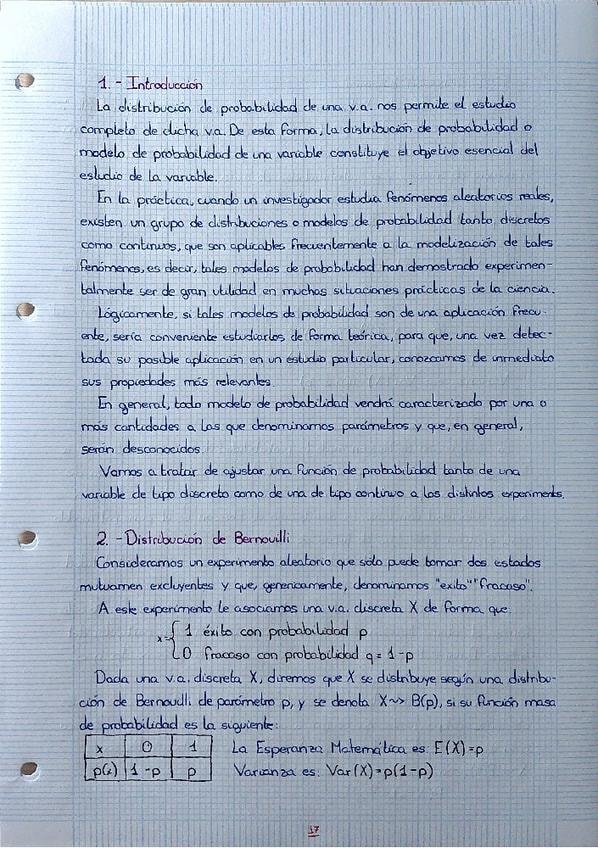 1.- Introducción
La distribución de probabilidad de una v.a. nos permite el estudio
completo de dicha v.a. De esta forma, la distribución de probabilidad o
modelo de probabilidad de una variable constituye el objetivo esencial del
estudio de la variable.
En la práctica, cuando un investigador estudia fenómenos aleatorios reales,
existen un grupo de distribuciones o modelos de probabilidad tanto discretos
como continuos, que son aplicables frecuentemente a la modelización de tales
fenómenos, es decir, tales modelos de probabilidad han demostrado experimen-
talmente ser de gran utilidad en muchas situaciones prácticas de la ciencia.
Lógicamente, si tales modelos de probabilidad son de una aplicación frecu-
ente, sería conveniente estudiarlos de forma teórica, para que, una vez detec-
tada su posible aplicación en un estudio particular, conozcamos de inmediato
sus propiedades más relevantes.
En general, todo modelo de probabilidad vendrá caracterizado por una o
más cantidades a las que denominamos parámetros y que, en general,
serán desconocidos.
Vamos a tratar de ajustar una función de probabilidad tanto de una
variable de tipo discreto como de una de tipo continuo a los distintos experiments.
2.- Distribución de Bernouilli
Consideramos un experimento aleatorio que sólo puede tomar dos estados
mutuamen excluyentes y que, genéricamente, denominamos "exito" "fracaso".
A este experimento le asociamos una v.a. discreta X de forma que:
x={ 1 éxito con probabilidad p
0 fracaso con probabilidad q = 1-p
Dada una v.a. discreta X, diremos que X se distribuye según una distribu-
ción de Bernouilli de parámetro p, y se denota X~>B(p), si su función masa
de probabilidad es la siguiente:
x 0 1 La Esperanza Matemática es E(X)=p
p(x) 1-p p Varianza es: Var(X)=p(1-p)
37